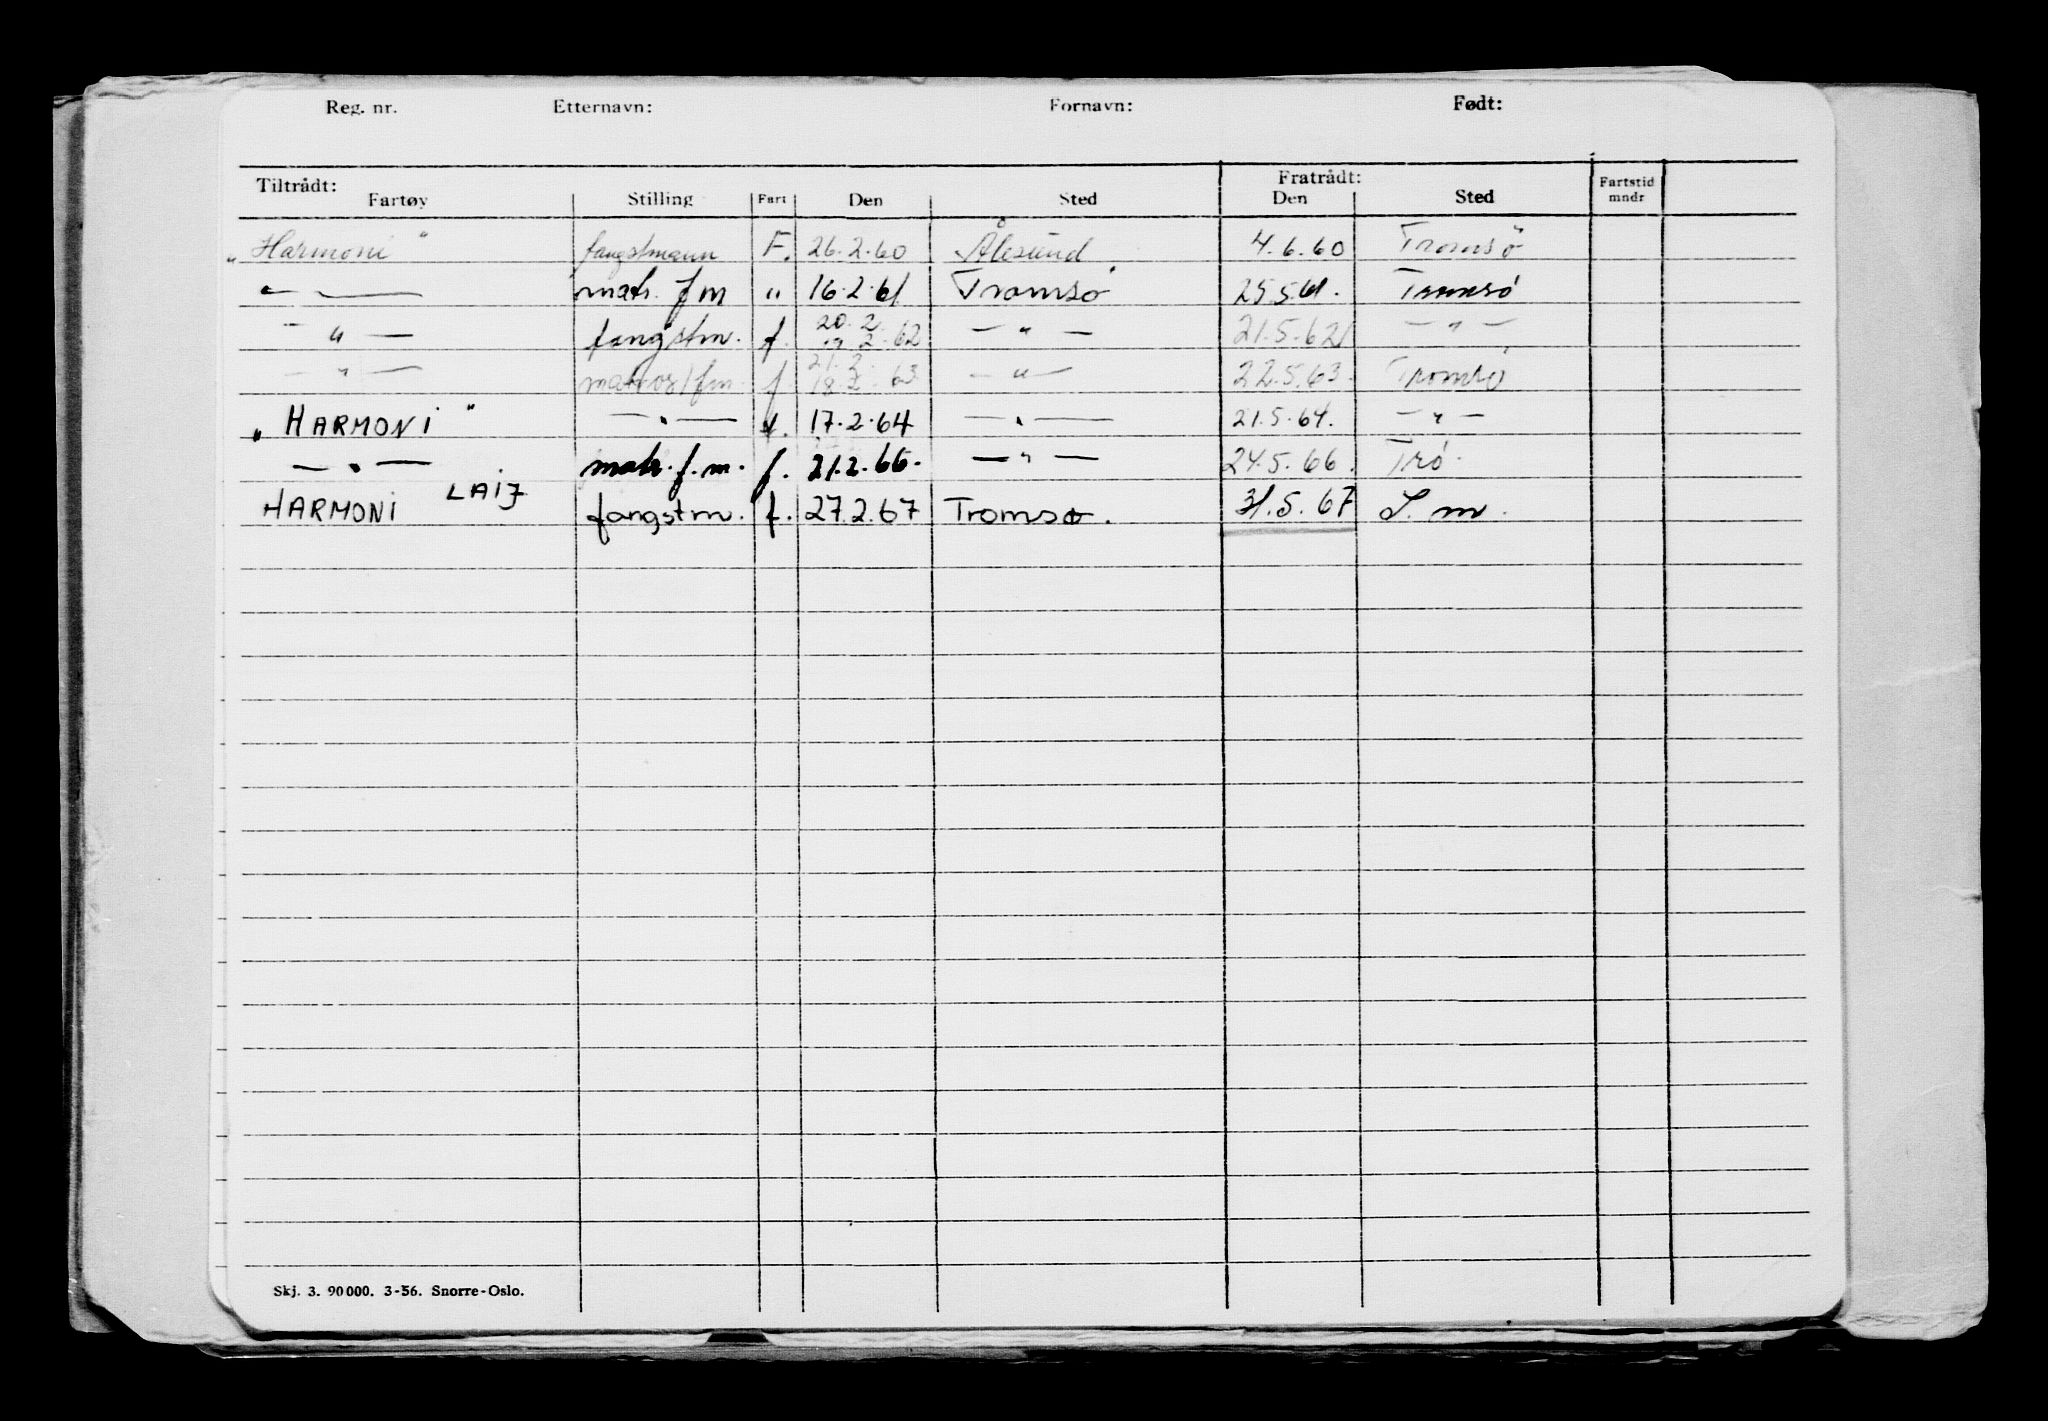 Reg. nr. Etternavn: Fornavn: Født:
Tiltrådt: Fratrådt:
Fartøy Stilling Fart Den Sted Den Sted Fartstid mndr
„Harmoni" fangstmann F. 26.2.60 Ålesund 4.6.60 Tromsø
— " — matr. fm " 16.2.61 Tromsø 25.5.61. Tromsø
— " — fangstm. f. 20.2. 2.62 — " — 21.5.62 — " —
— " — matros/fm. f 21.2. 18.2.63 — " — 22.5.63. Tromsø
„HARMONI" — " — f. 17.2.64 — " — 21.5.64. — " —
— " — matr. f.m. f. 21.2.66. — " — 24.5.66. Trø.
HARMONI LAIJ fangstm. f. 27.2.67 Tromsø. 31.5.67 S. m.
Skj. 3. 90 000. 3-56. Snorre-Oslo.